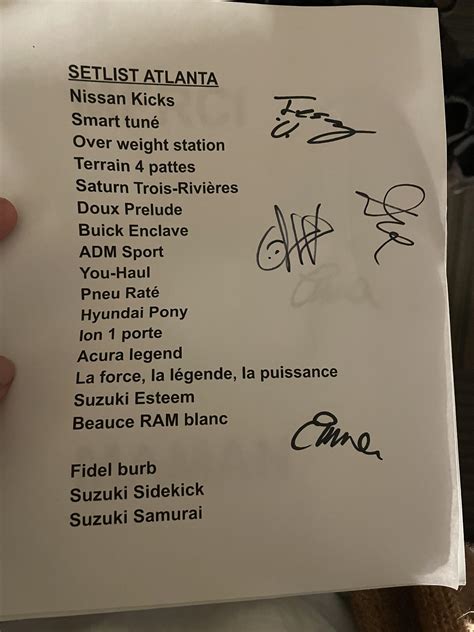 SETLIST ATLANTA
Nissan Kicks
Smart tuné
Over weight station
Terrain 4 pattes
Saturn Trois-Rivières
Doux Prelude
Buick Enclave
ADM Sport
You-Haul
Pneu Raté
Hyundai Pony
Ion 1 porte
Acura legend
La force, la légende, la puissance
Suzuki Esteem
Beauce RAM blanc
Fidel burb
Suzuki Sidekick
Suzuki Samurai